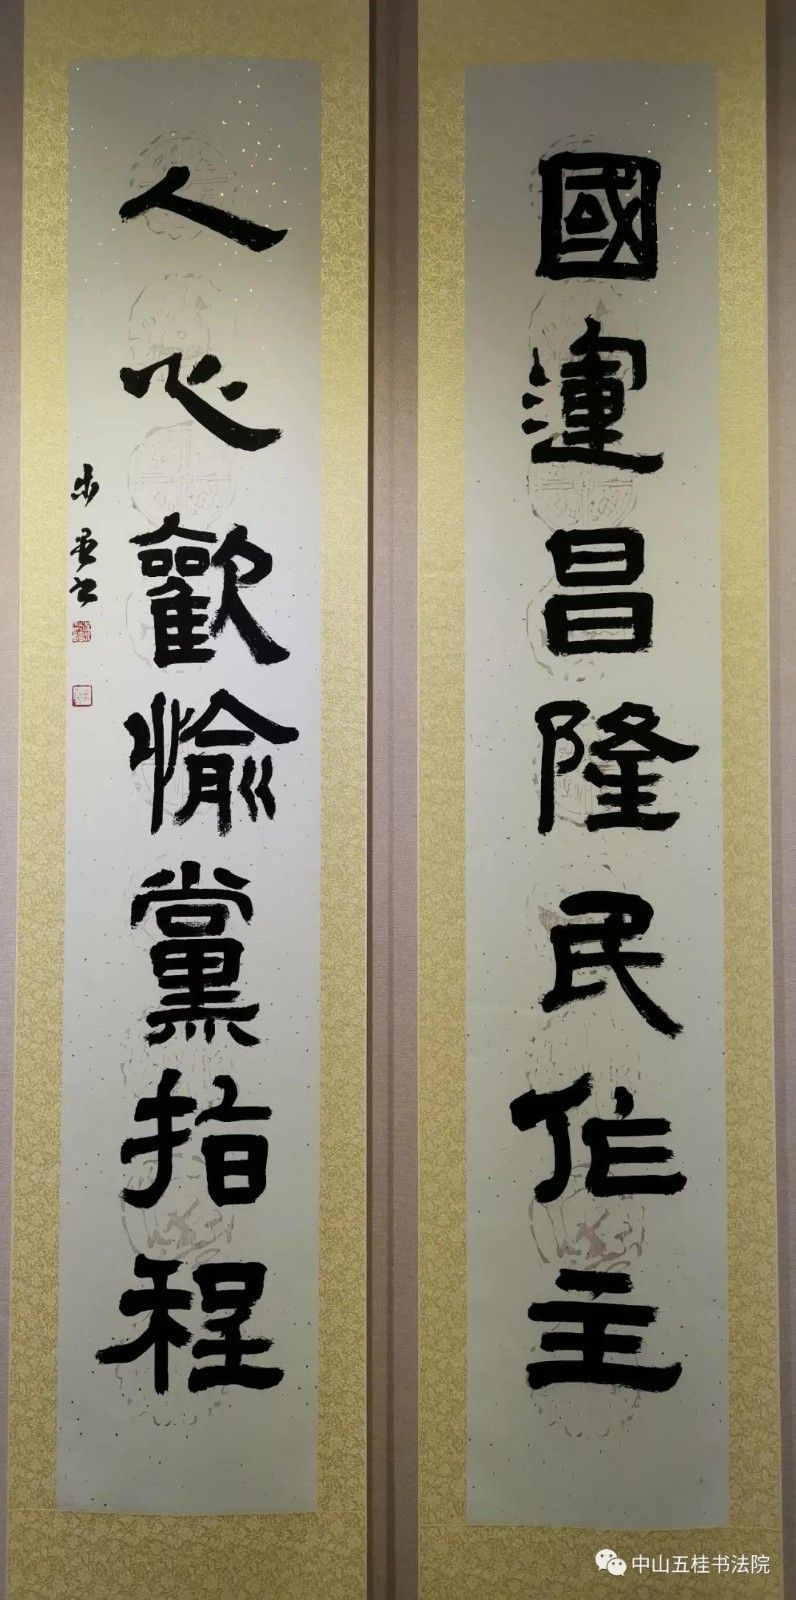 國運昌隆民作主
人心歡愉黨指程
中山五桂书法院